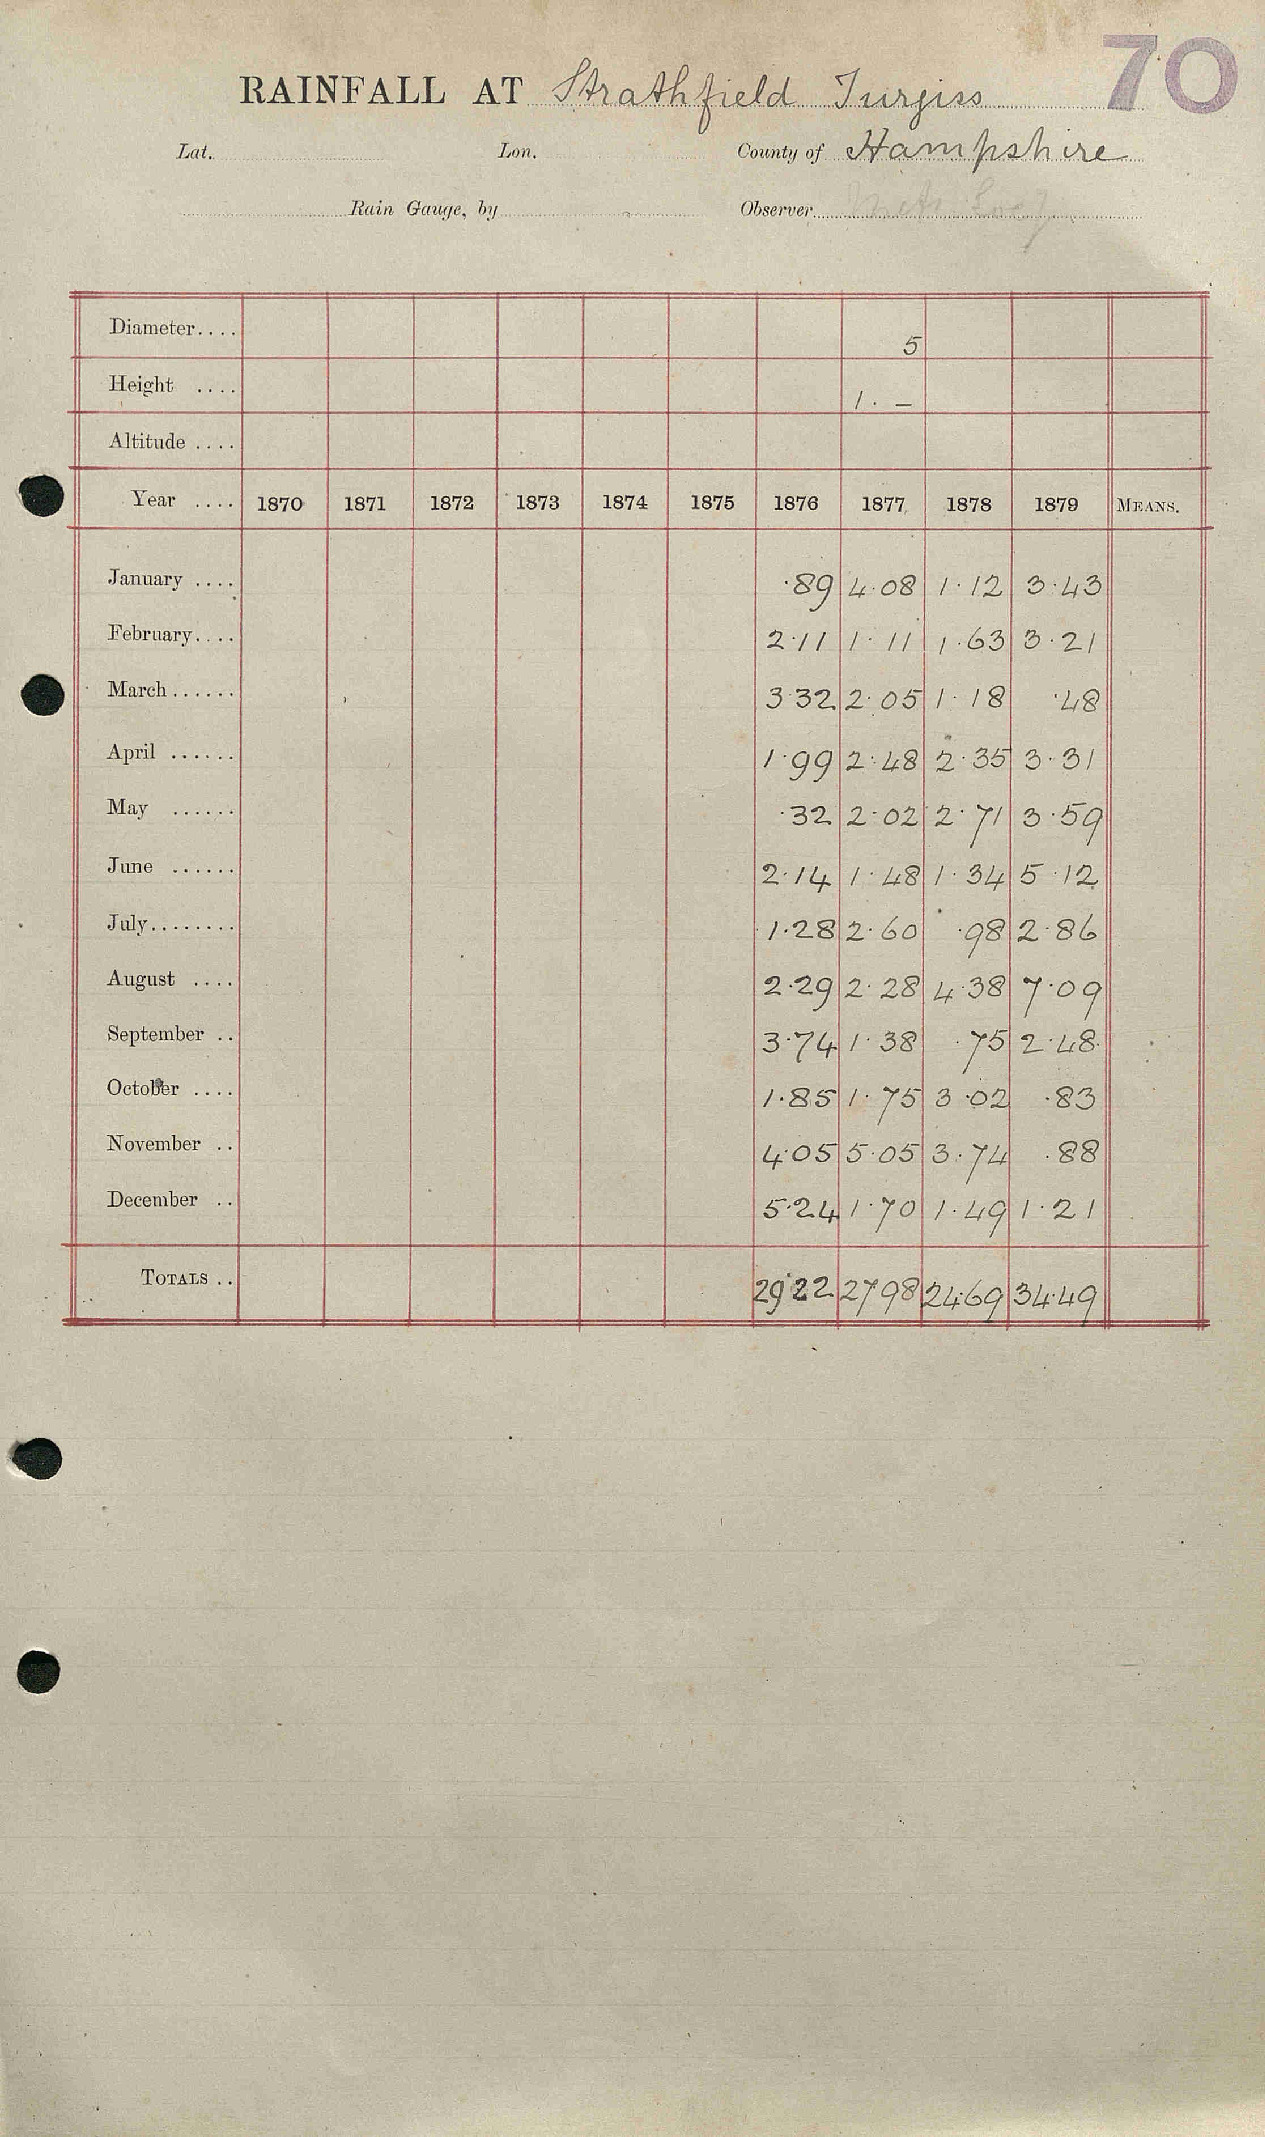 70
RAINFALL AT Strathfield Turgiss
Lat. Lon. County of Hampshire
Rain Gauge, by Observer
Diameter.... 5
Height .... 1 · —
Altitude ....
Year .... 1870 1871 1872 1873 1874 1875 1876 1877 1878 1879 MEANS.
January .... ·89 4·08 1·12 3·43
February.... 2·11 1·11 1·63 3·21
March...... 3·32 2·05 1·18 ·48
April ...... 1·99 2·48 2·35 3·31
May ...... ·32 2·02 2·71 3·59
June ...... 2·14 1·48 1·34 5·12
July........ 1·28 2·60 ·98 2·86
August .... 2·29 2·28 4·38 7·09
September .. 3·74 1·38 ·75 2·48
October .... 1·85 1·75 3·02 ·83
November .. 4·05 5·05 3·74 ·88
December .. 5·24 1·70 1·49 1·21
TOTALS .. 29·22 27 98 24·69 34·49